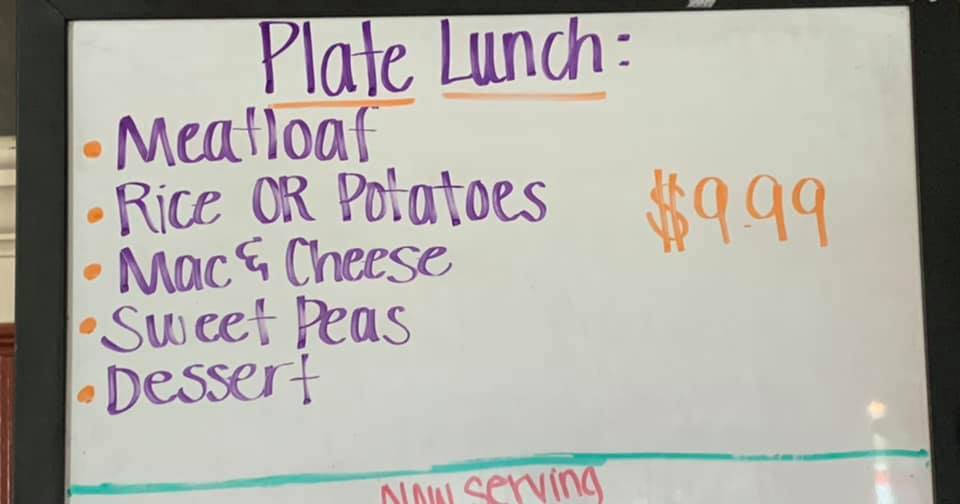 Plate Lunch:
• Meatloaf
• Rice OR Potatoes
$9.99
• Mac & Cheese
• Sweet Peas
• Dessert
Now serving